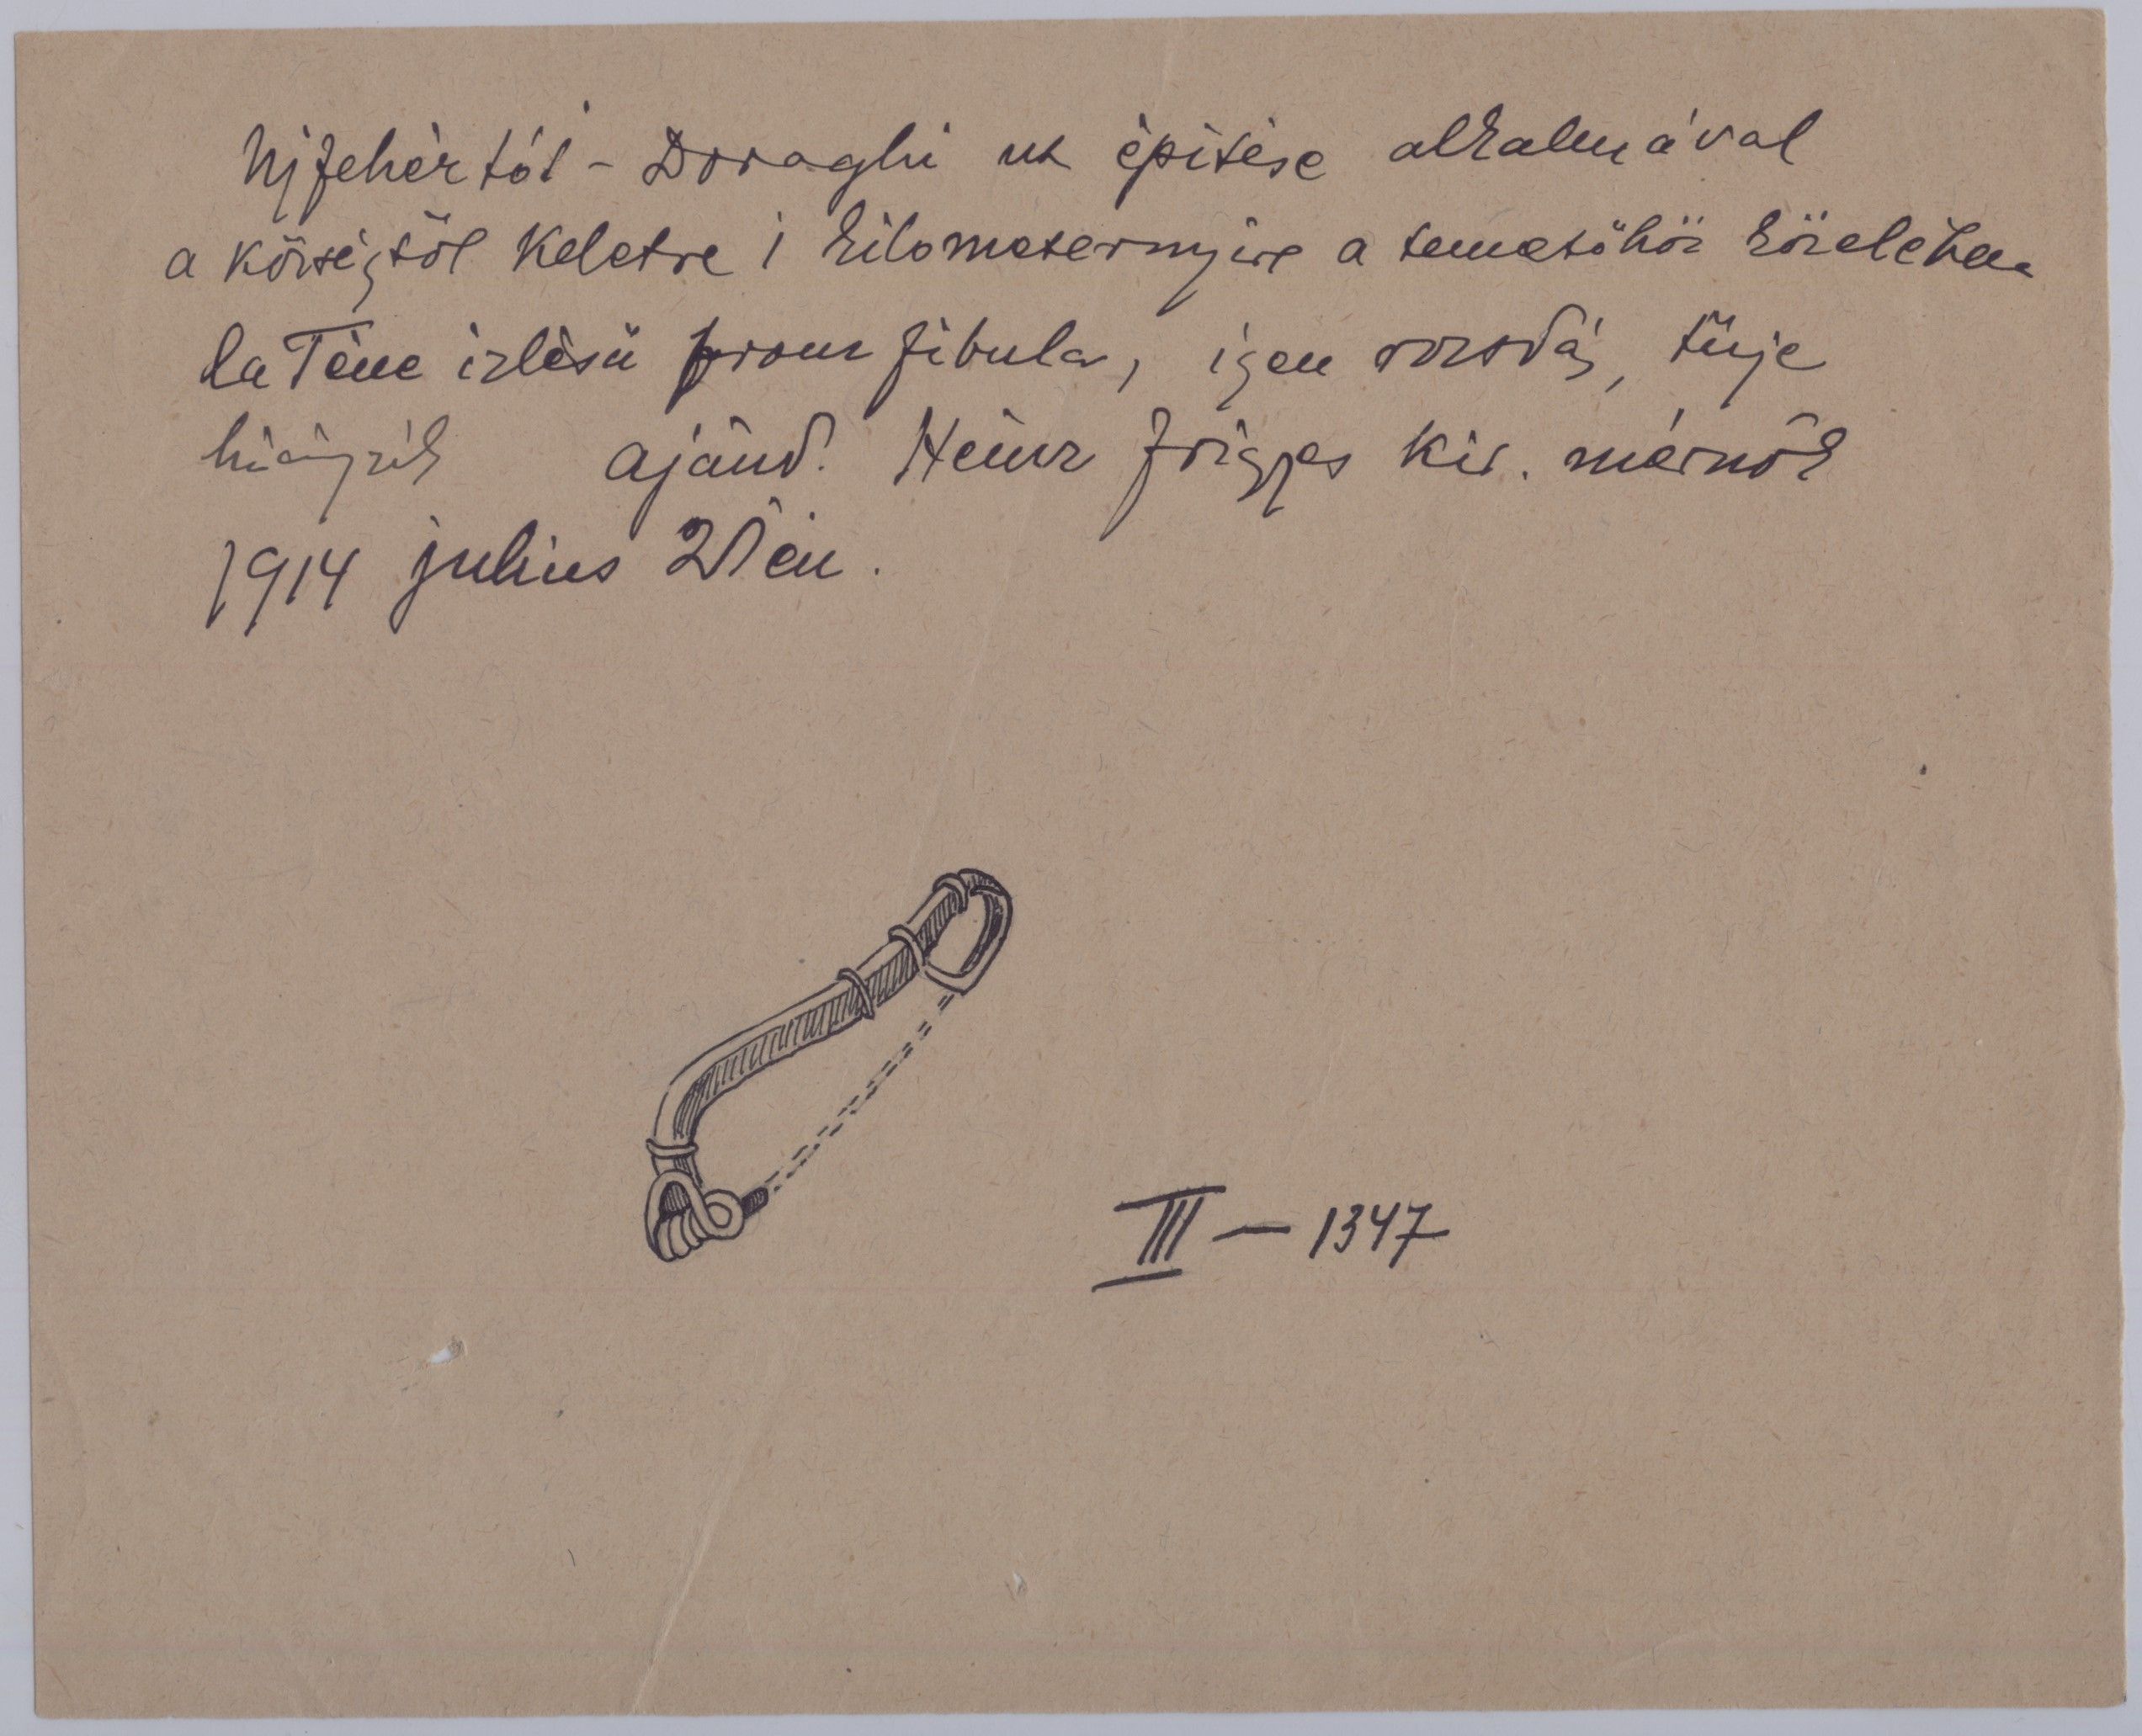 Ujfehértói - Doroghi ut épitése alkalmával
a községtől Keletre 1 kilometernyire a temetőhöz közelében
La Téne izlésü bronz fibula, igen rozsdás, tüje
hiányzik ajánd. Heinz Frigyes kir. mérnök
1914 julius 21 én.
III - 1347